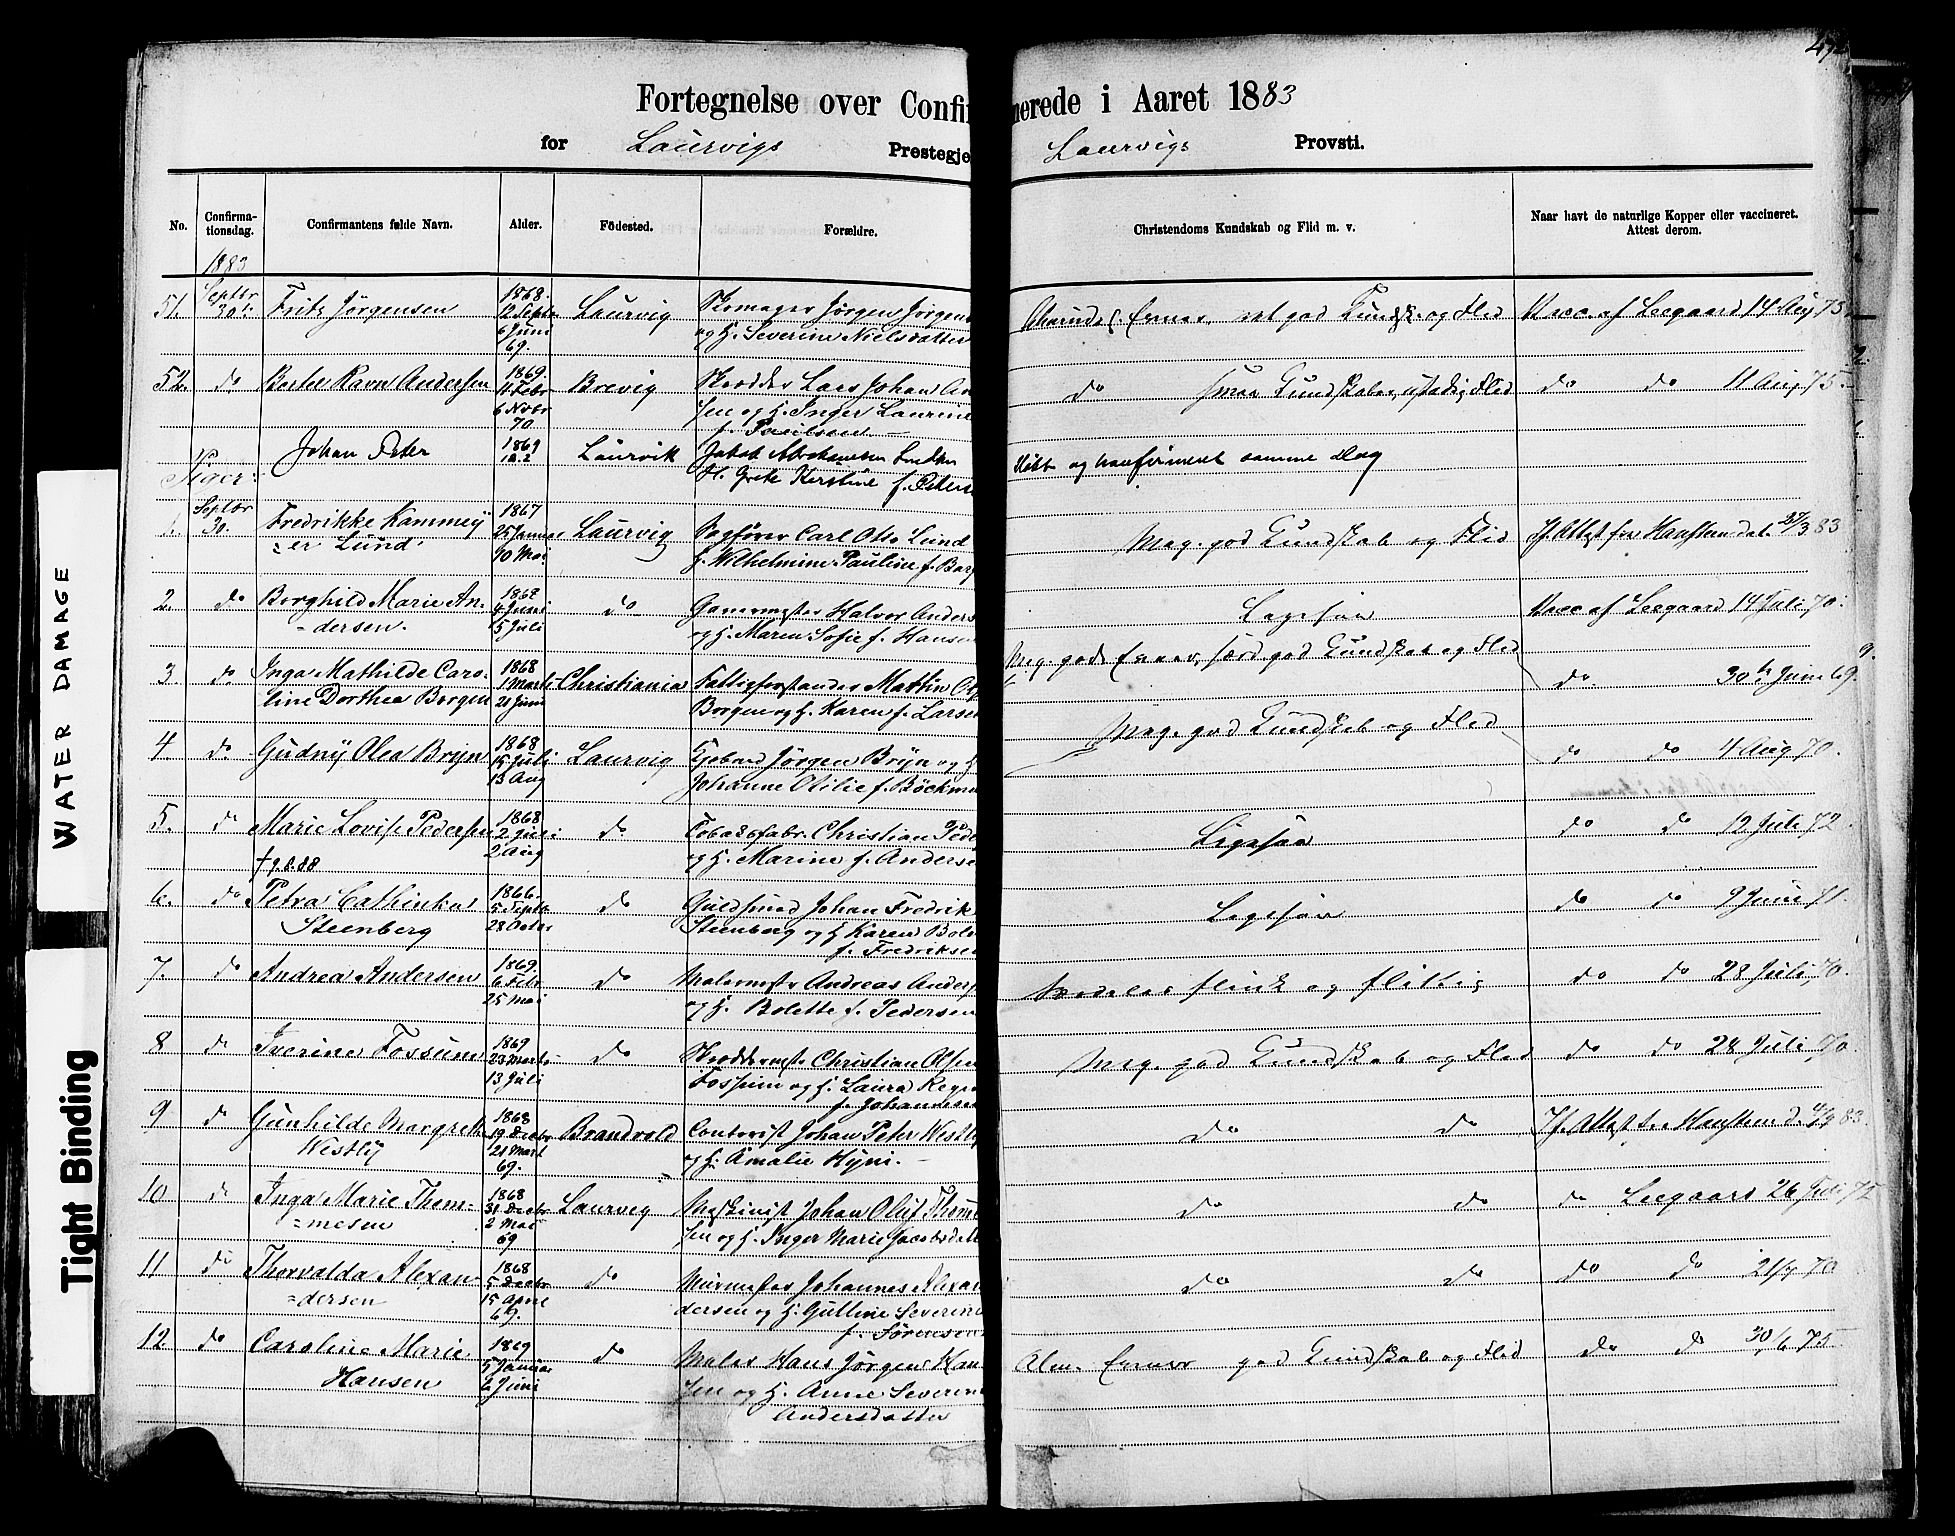 Fortegnelse over Confir
merede i Aaret 1883
for Laurvigs Prestegje
Laurvigs Provsti.
No. Confirma-tionsdag. Confirmantens fulde Navn. Alder. Födested. Forældre.
Christendoms Kundskab og Flid m. v. Naar havt de naturlige Kopper eller vaccineret. Attest derom.
1883
51. Septbr 30te Fritz Jörgensen 1868. 12 Septb 6 Juni 69. Laurvig Skomager Jörgen Jörgens
og H. Severine Nielsdatter
ret god Kundsk. og Flid Vacc. af Leegaard 14 Aug 73.
52. do Bertel Ravn Andersen 1869. 11 Febr 6 Novbr 70 Brevig Skrædder Lars Johan An
sen og H. Inger Laurine
f. Paulsen
do smaa Kundskaber, ustadig Flid do do 11 Aug 75.
Johan Peter 1869 Laurvik Jakob Abrahamsen
H. Grete Kerstine f. Peters
og konfirmeret samme Dag
Piger:
1. Septbr 30. Fredrikke Kammey
er Lund 1867 25 Januar 10 Mai Laurvig Sagförer Carl Otto Lund
H. Wilhelmine Pauline f. Borg
Meg. god Kundskab og Flid
2. do Borghild Marie An-
dersen. 1868 4 Juni 5 Juli do Garvermester Halvor Anders
og H. Maren Sofie f. Hansen
Ligesaa Vacc af Leegaard 14 Juli 70.
3 do Inga Mathilde Caro-
line Dorthea Borgen 1868 1 Marts 21 Juni Christiania Fattigforstander Martin Ols
Borgen og H. Karen f. Larsen
Meg. gode Evner, særd. god Kundskab og Flid do. 30te Juni 69.
4. do Gudny Olea Bryn 1868 15 Juli 13 Aug Laurvig Jörgen Bryn og H
Johanne Otilie f. Böckman
Meg. god Kundskab og Flid do do 4 Aug 70.
5. do Marie Lovise Pedersen 1868 2 Juli 2 Aug do Tobaksfabr. Christian Peder
† 9.8.88 og H. Marine f. Anderse
Ligesaa do do 12 Juli 72.
6. do Petra Cathinka
Steenberg 1866. 5 Septb 28 Octbr do Guldsmed Johan Fredrik
Steenberg og H. Karen Bole
f. Fredriksen
Ligesaa do do 9 Juni 71.
7. do Andrea Andersen 1869. 6 Febr 25 Mai do Malermstr Andreas Anders
og H. Bolette f. Pedersen
flink og flittig do do 28 Juli 70.
8 do Iverine Fossum 1869 23 Marts 13 Juli do Skræddermstr Christian Olsen
Fossum og H. Laura Regin
f. Johannesen
Meg. god Kundskab og Flid do do 28 Juli 70.
9 do Gunhilde Margrethe
Westby 1868 19 Decbr 21 Mart 69. Brandvold Contorist Johan Peter Westby
og H. Amalie Hyni.
do do
10 do Inga Marie Thom-
mesen 1868 31 Decbr 2 Mai 69 Laurvig Maskinist Johan Oluf Thom
sen og H. Inger Marie
do do do Leegaard 26 Juli 72
11 do Thorvalda Alexan-
dersen 1868 5 Decbr 15 April 69. do Murmester Johannes Alexan
dersen og H. Gulline Severine
f. Sörensen
do do do do 21/7 70
12 do Caroline Marie
Hansen 1869 5 Januar 6 Juni do Maler Hans Jörgen Han
sen og H. Anne Severine
Andersdatter
Alm. Evner god Kundskab og Flid do do 30/6 75
WATER DAMAGE
Tight Binding